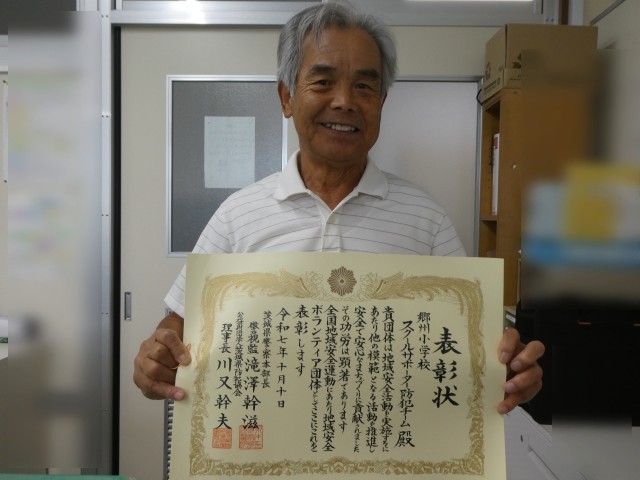 表彰状
郷州小学校
スクールサポーター防犯チーム 殿
貴団体は地域安全活動を実施するに
あたり他の模範となる活動を推進し
安全で安心なまちづくりに貢献されました
その功労は顕著であります
全国地域安全運動にあたり地域安全
ボランティア団体としてここにこれを
表彰します
令和七年十月十日
茨城県警察本部長
警視監 滝澤幹滋
公益財団法人茨城県防犯協会
理事長 川又幹夫